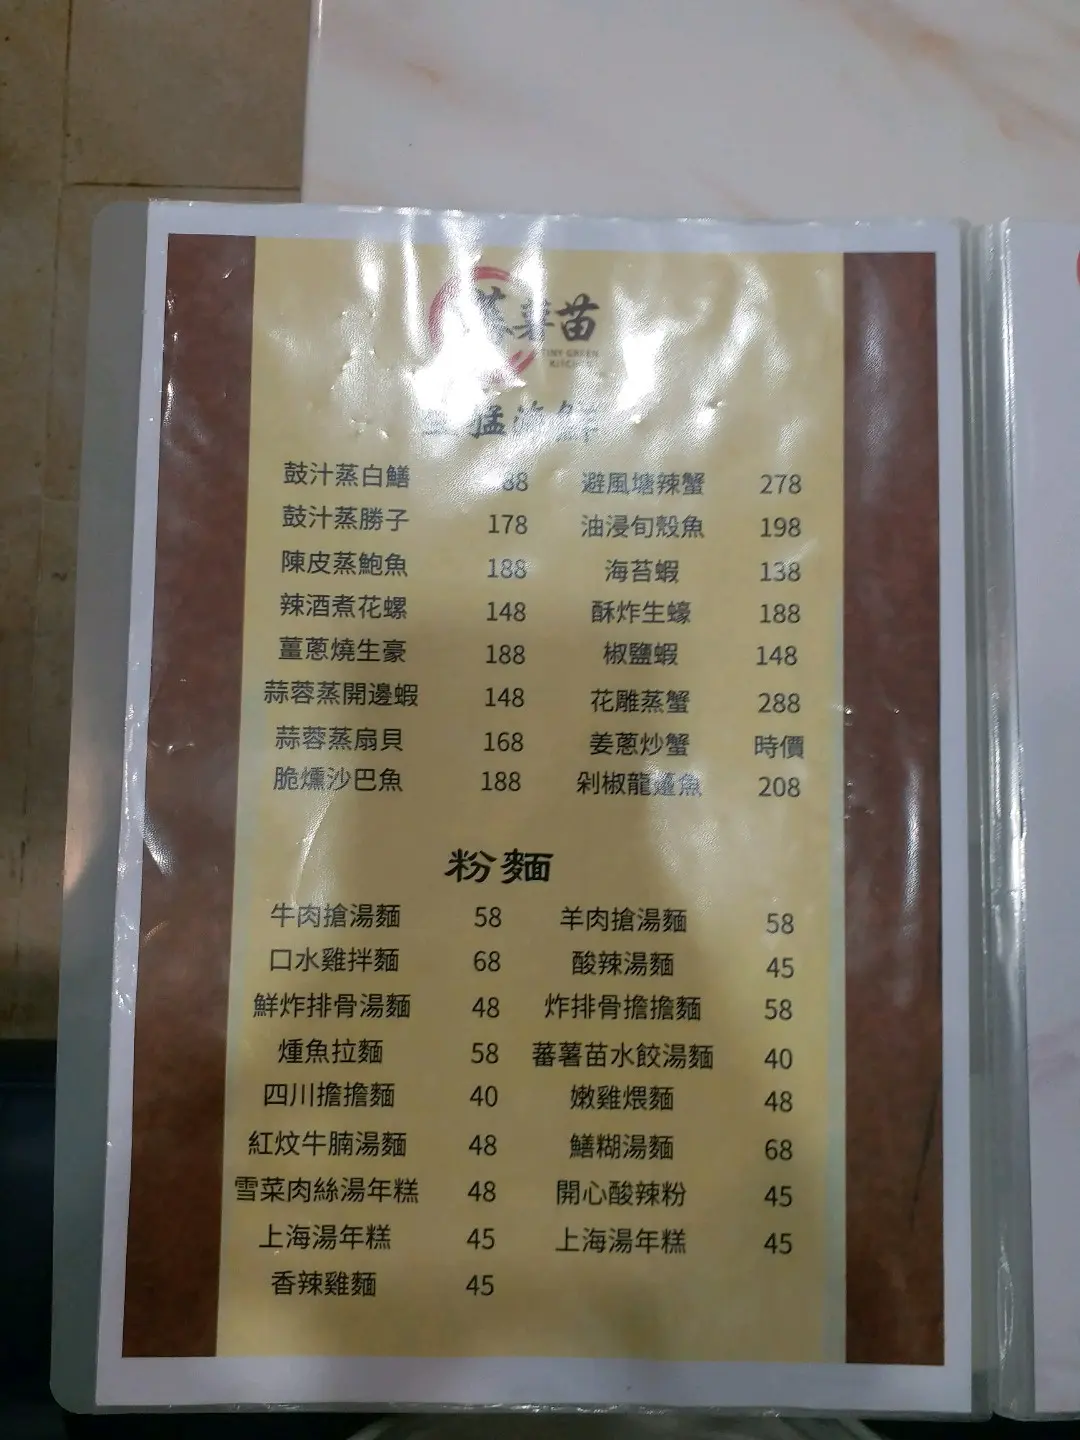 蕃薯苗
TINY GREEN
KITCHEN
生猛海鮮
鼓汁蒸白鱔 避風塘辣蟹 278
鼓汁蒸勝子 178 油浸旬殼魚 198
陳皮蒸鮑魚 188 海苔蝦 138
辣酒煮花螺 148 酥炸生蠔 188
薑蔥燒生豪 188 椒鹽蝦 148
蒜蓉蒸開邊蝦 148 花雕蒸蟹 288
蒜蓉蒸扇貝 168 姜蔥炒蟹 時價
脆燻沙巴魚 188 剁椒龍躉魚 208
粉麵
牛肉搶湯麵 58 羊肉搶湯麵 58
口水雞拌麵 68 酸辣湯麵 45
鮮炸排骨湯麵 48 炸排骨擔擔麵 58
煄魚拉麵 58 蕃薯苗水餃湯麵 40
四川擔擔麵 40 嫩雞煨麵 48
紅炆牛腩湯麵 48 鱔糊湯麵 68
雪菜肉絲湯年糕 48 開心酸辣粉 45
上海湯年糕 45 上海湯年糕 45
香辣雞麵 45